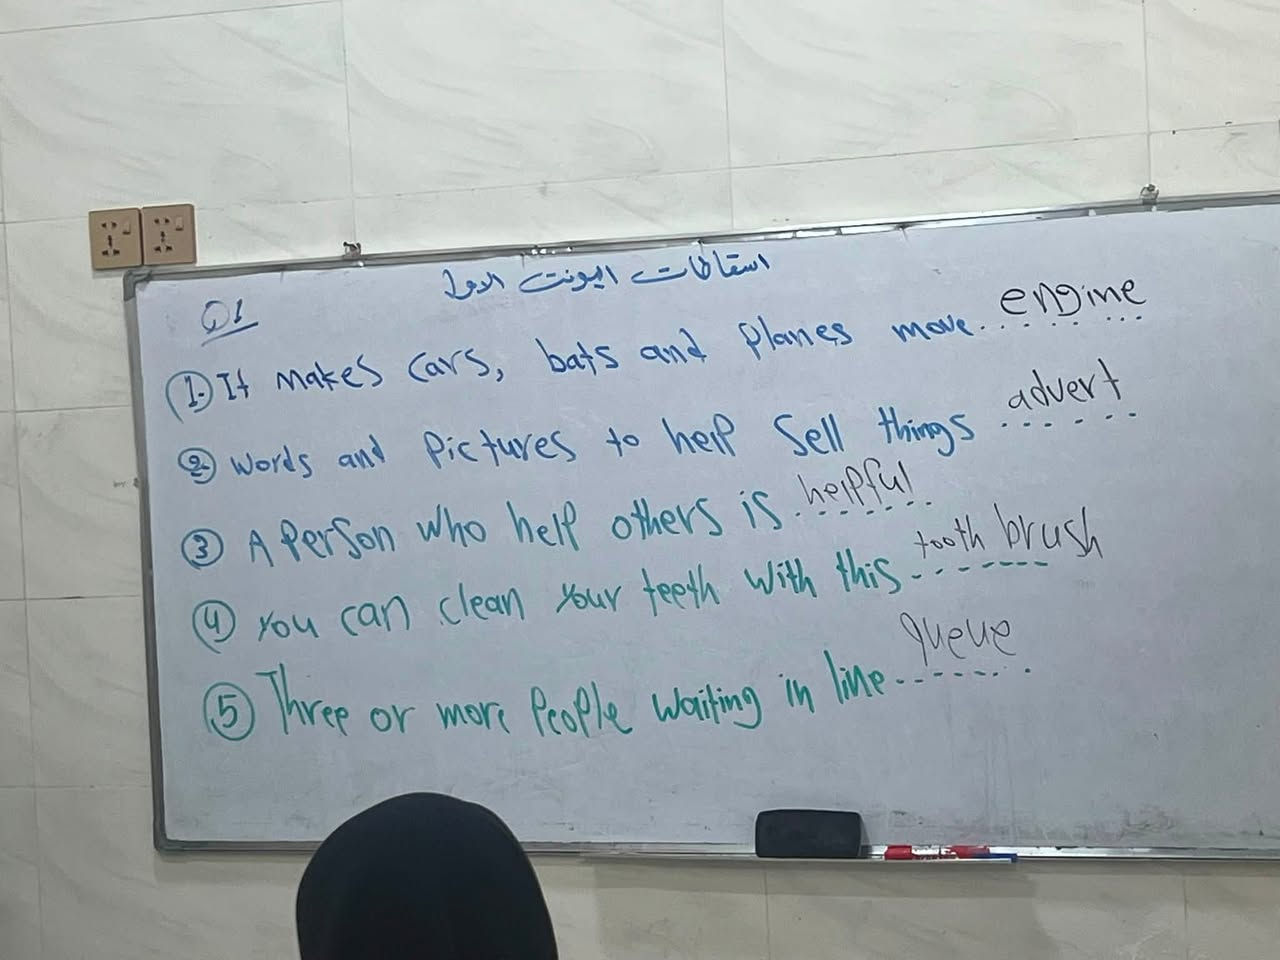 اسقاطات اليونت الاول
Q1
1. It makes cars, bats and planes move........ engine
2 words and pictures to help sell things ...... advert
3 A Person who help others is ........ helpful
4 you can clean your teeth with this ....... tooth brush
5 Three or more People waiting in line ....... queue